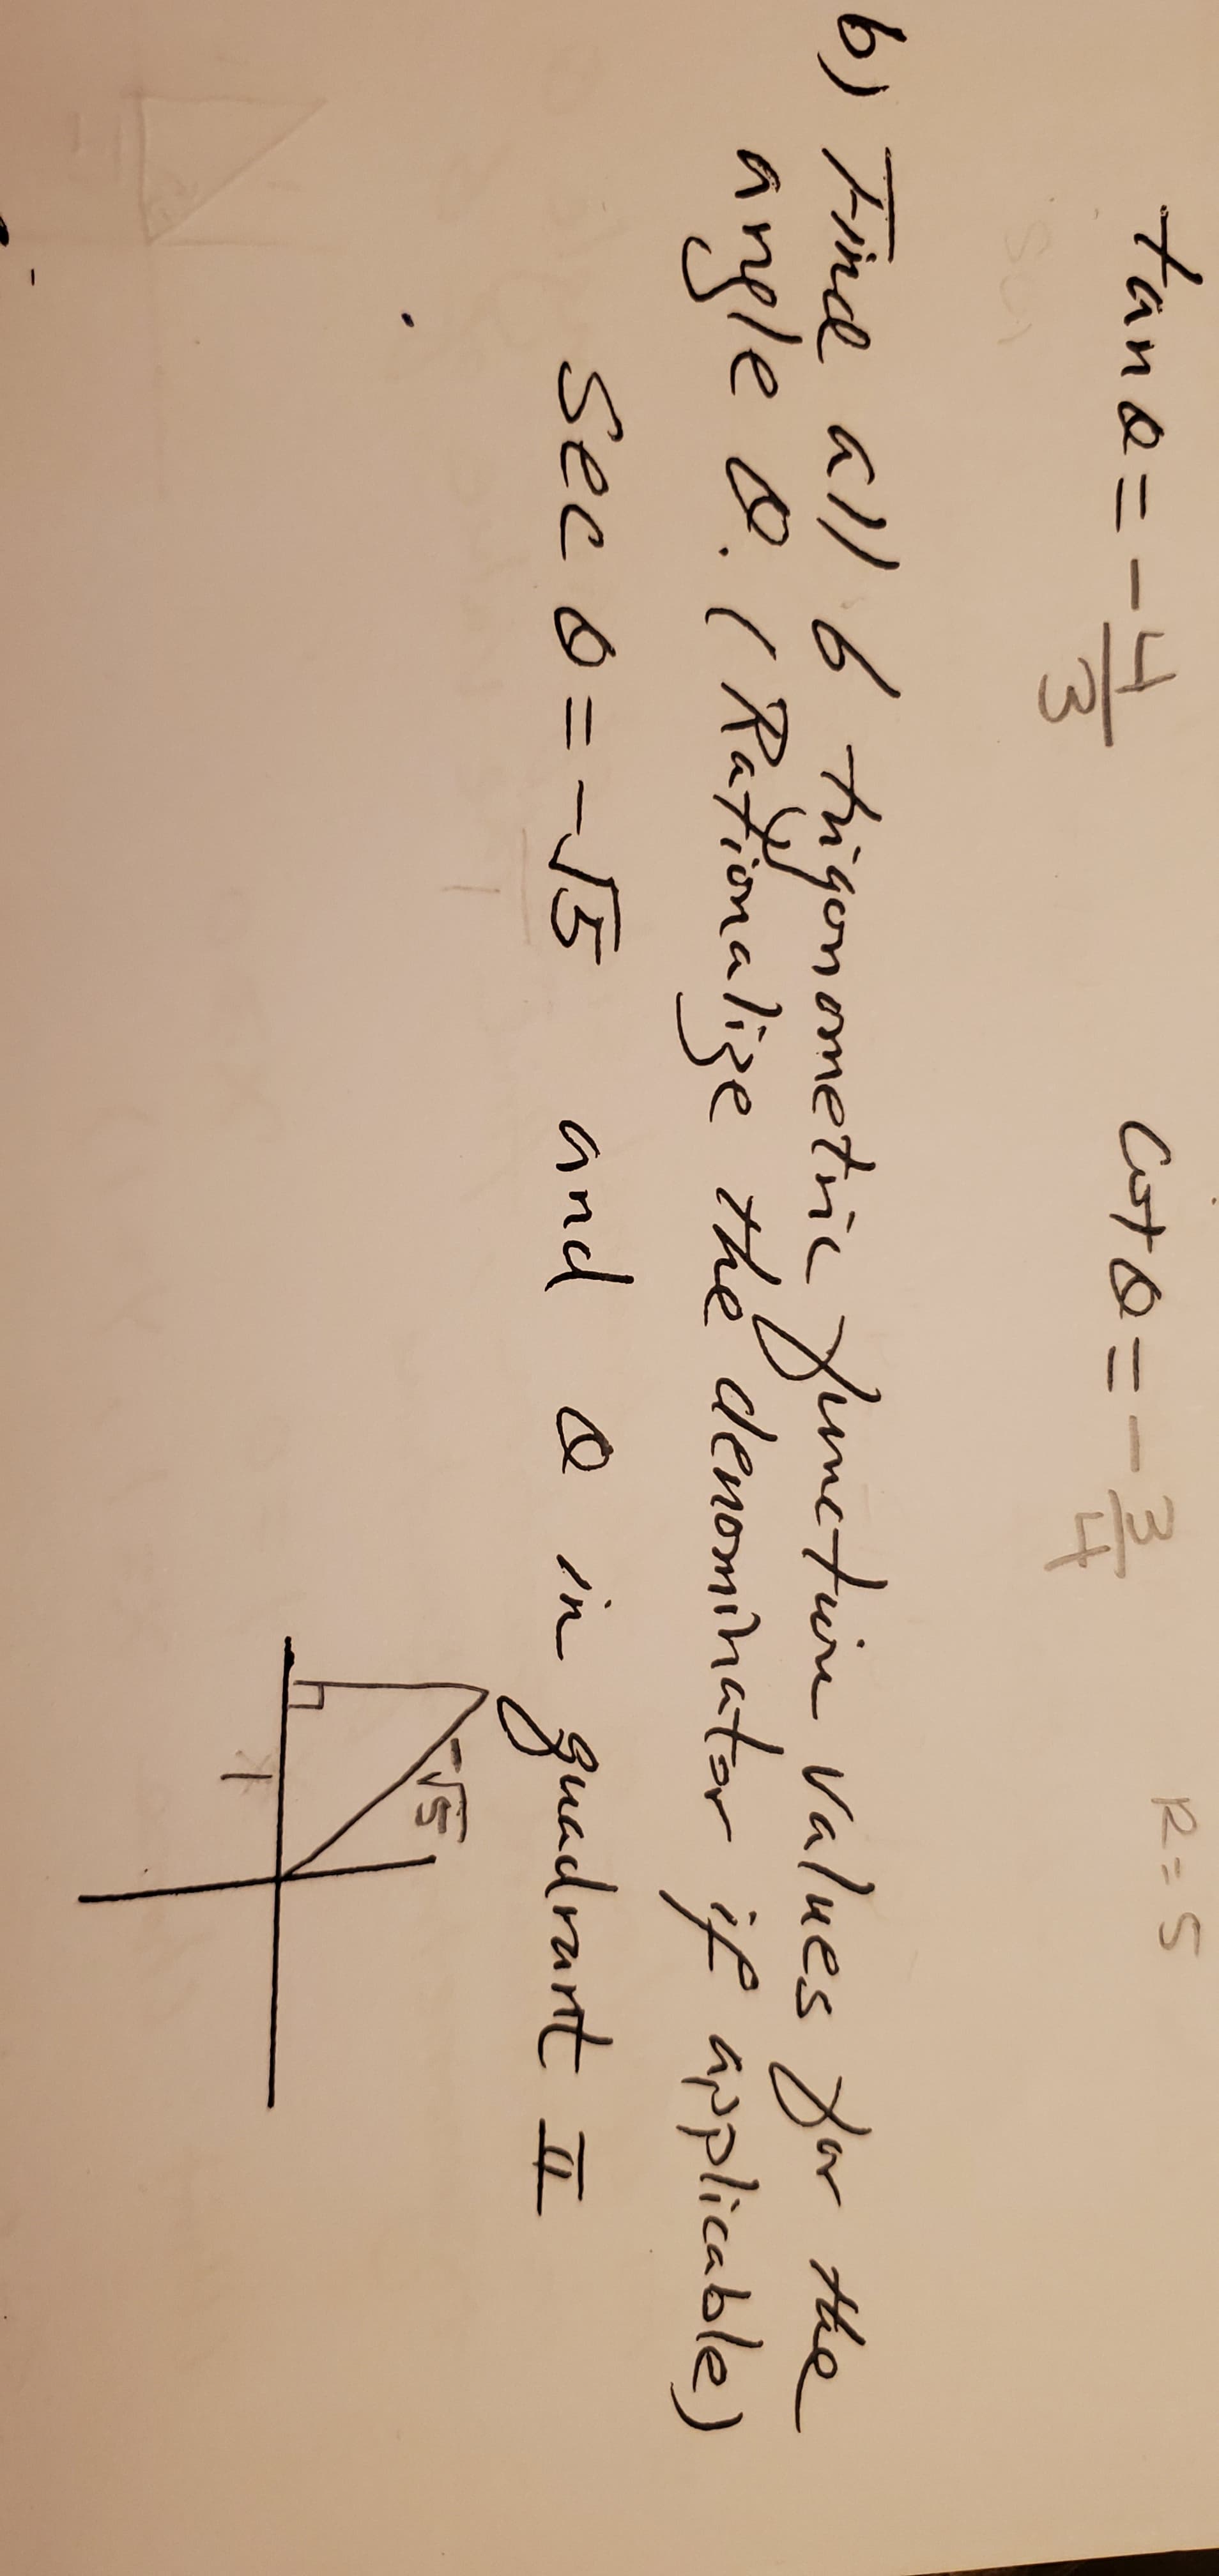 tan θ = -4/3 cot θ = -3/4 R = 5
b) Find all 6 trigonometric function values for the
angle θ. (Rationalize the denominator if applicable)
Sec θ = -√5 and θ in quadrant II
1
-√5
1